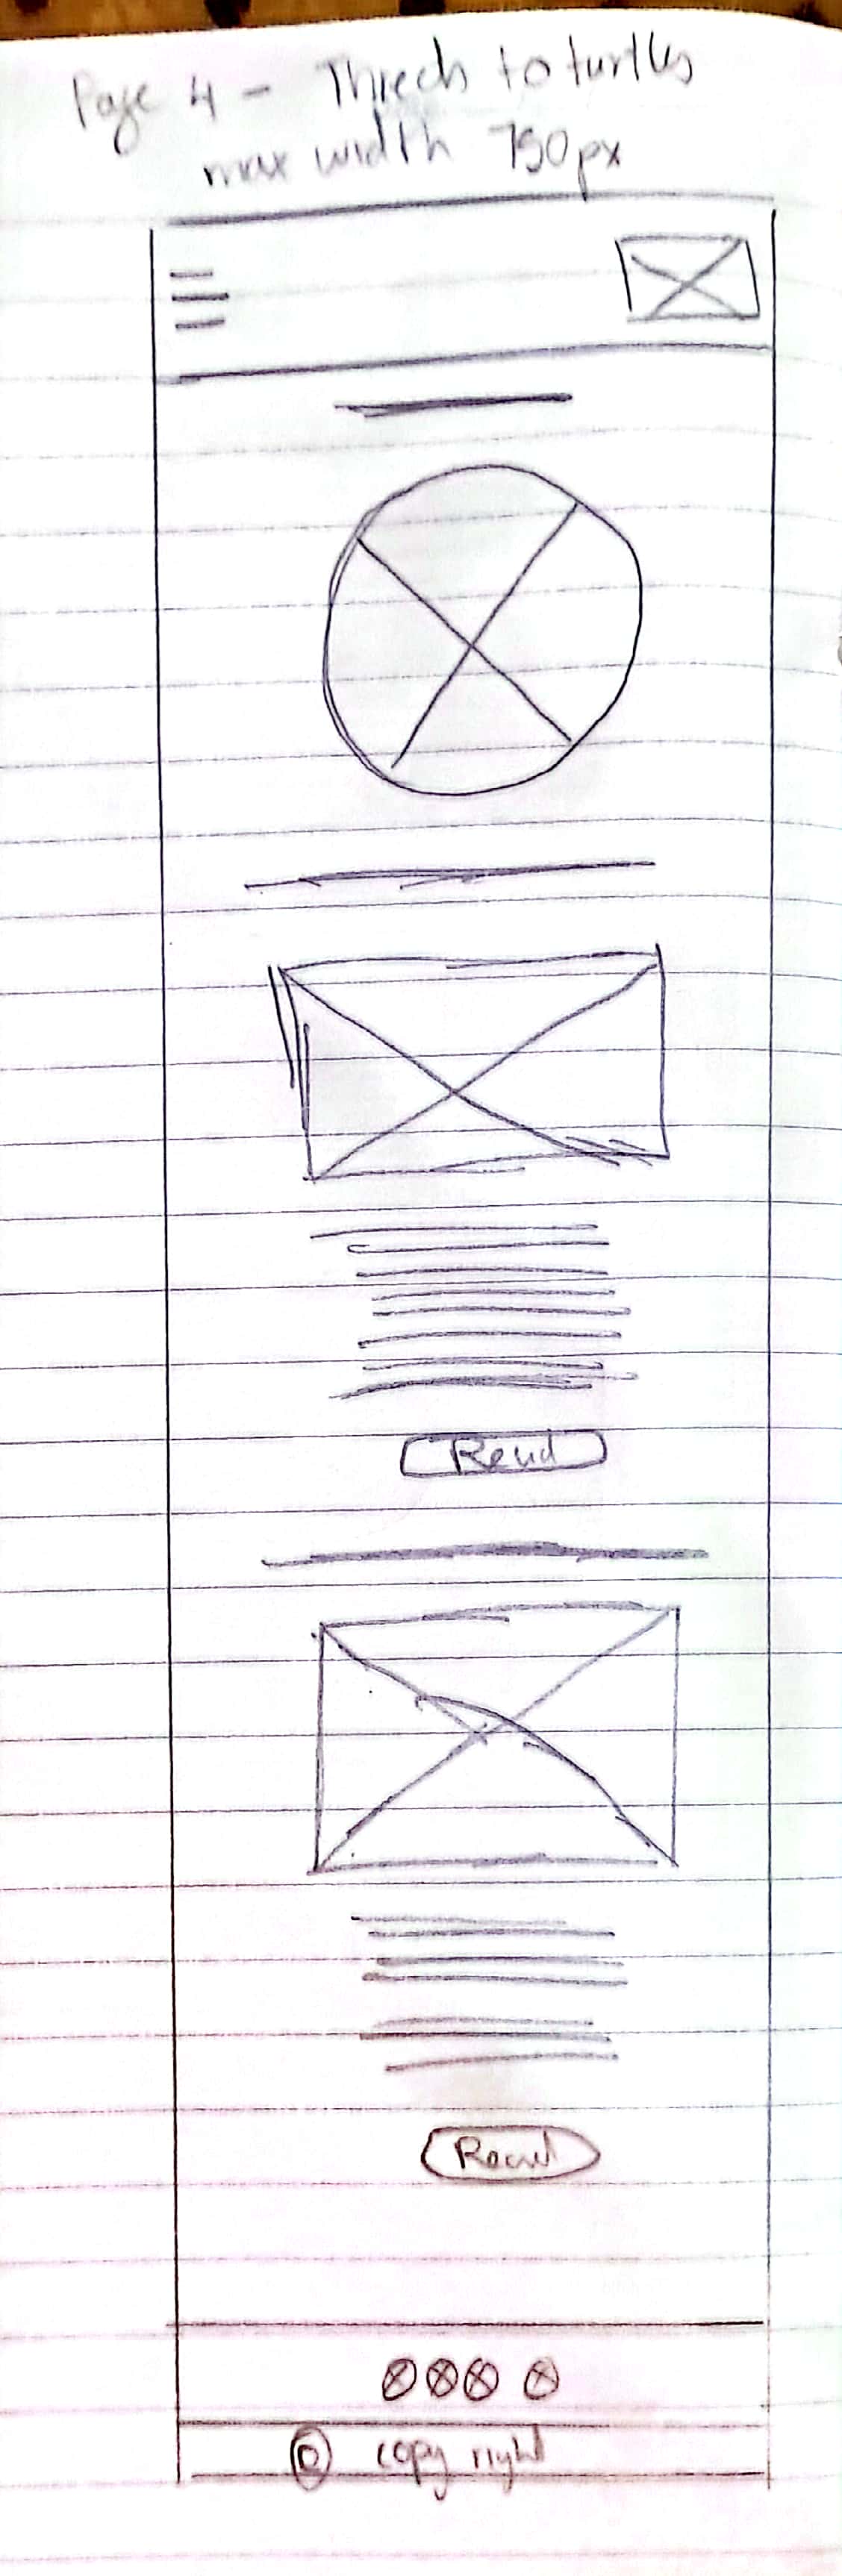 Page 4 - Threds to turtles
max width 750px
Read
Read
© copy right